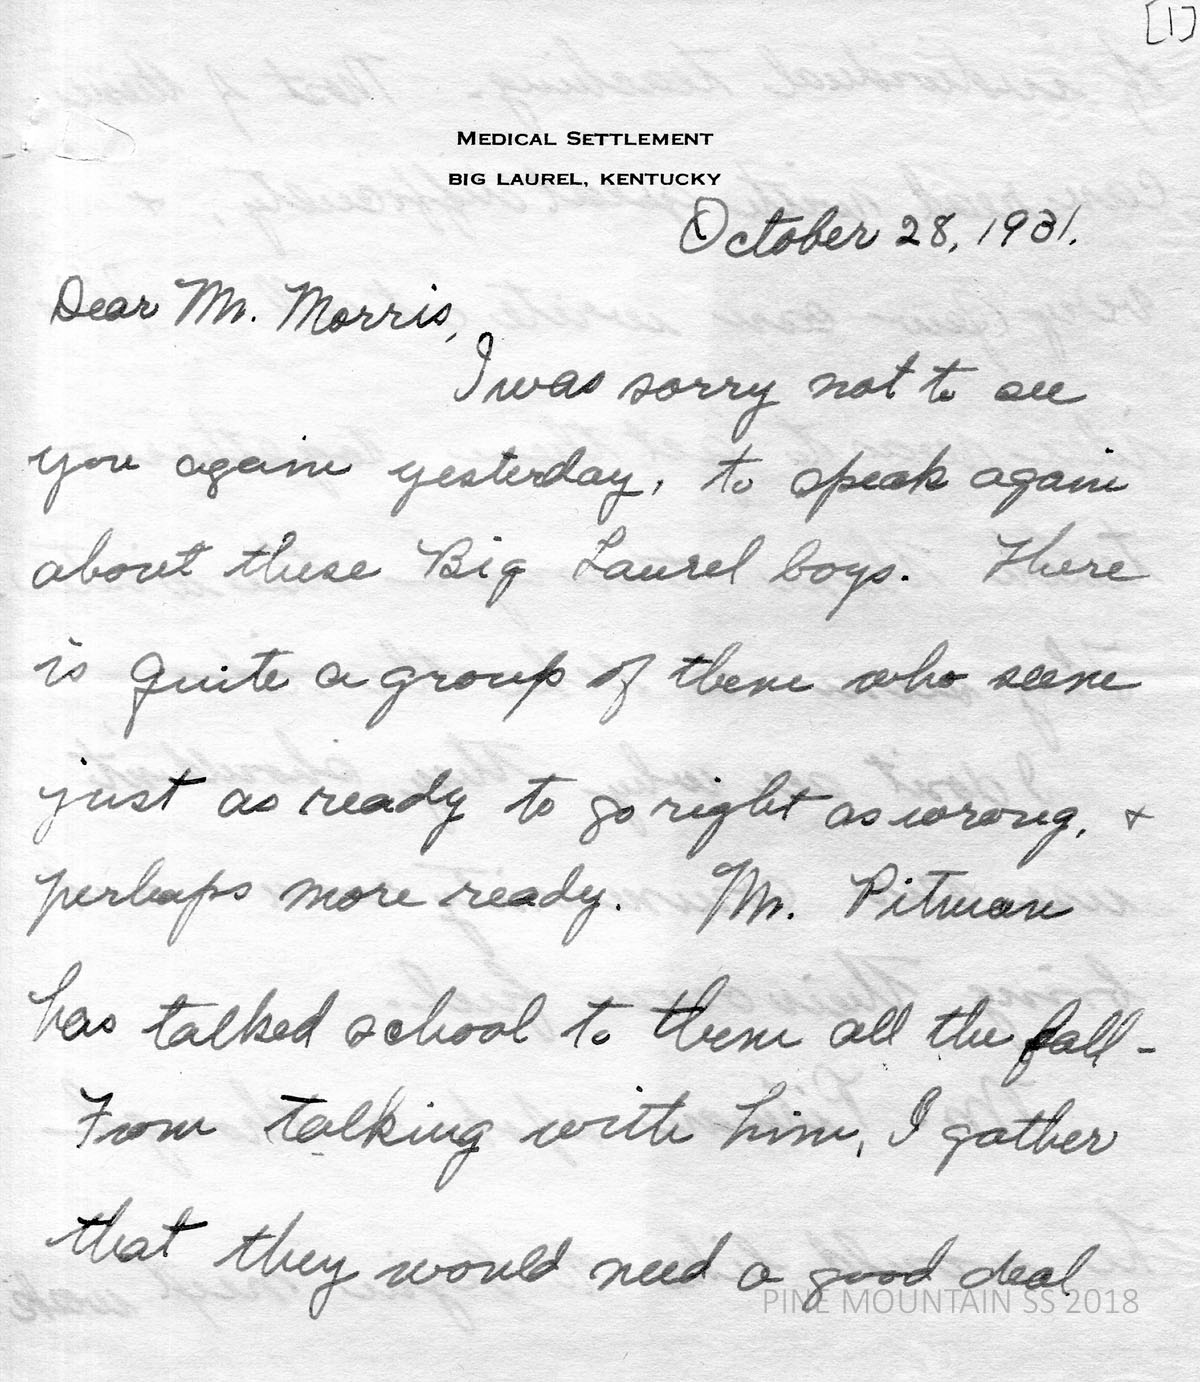 [1]
MEDICAL SETTLEMENT
BIG LAUREL, KENTUCKY
October 28, 1931.
Dear Mr. Morris,
I was sorry not to see
you again yesterday, to speak again
about these Big Laurel boys. There
is quite a group of them who seem
just as ready to go right as wrong, +
perhaps more ready. Mr. Pitman
has talked school to them all the fall -
From talking with him, I gather
that they would need a good deal
PINE MOUNTAIN SS 2018